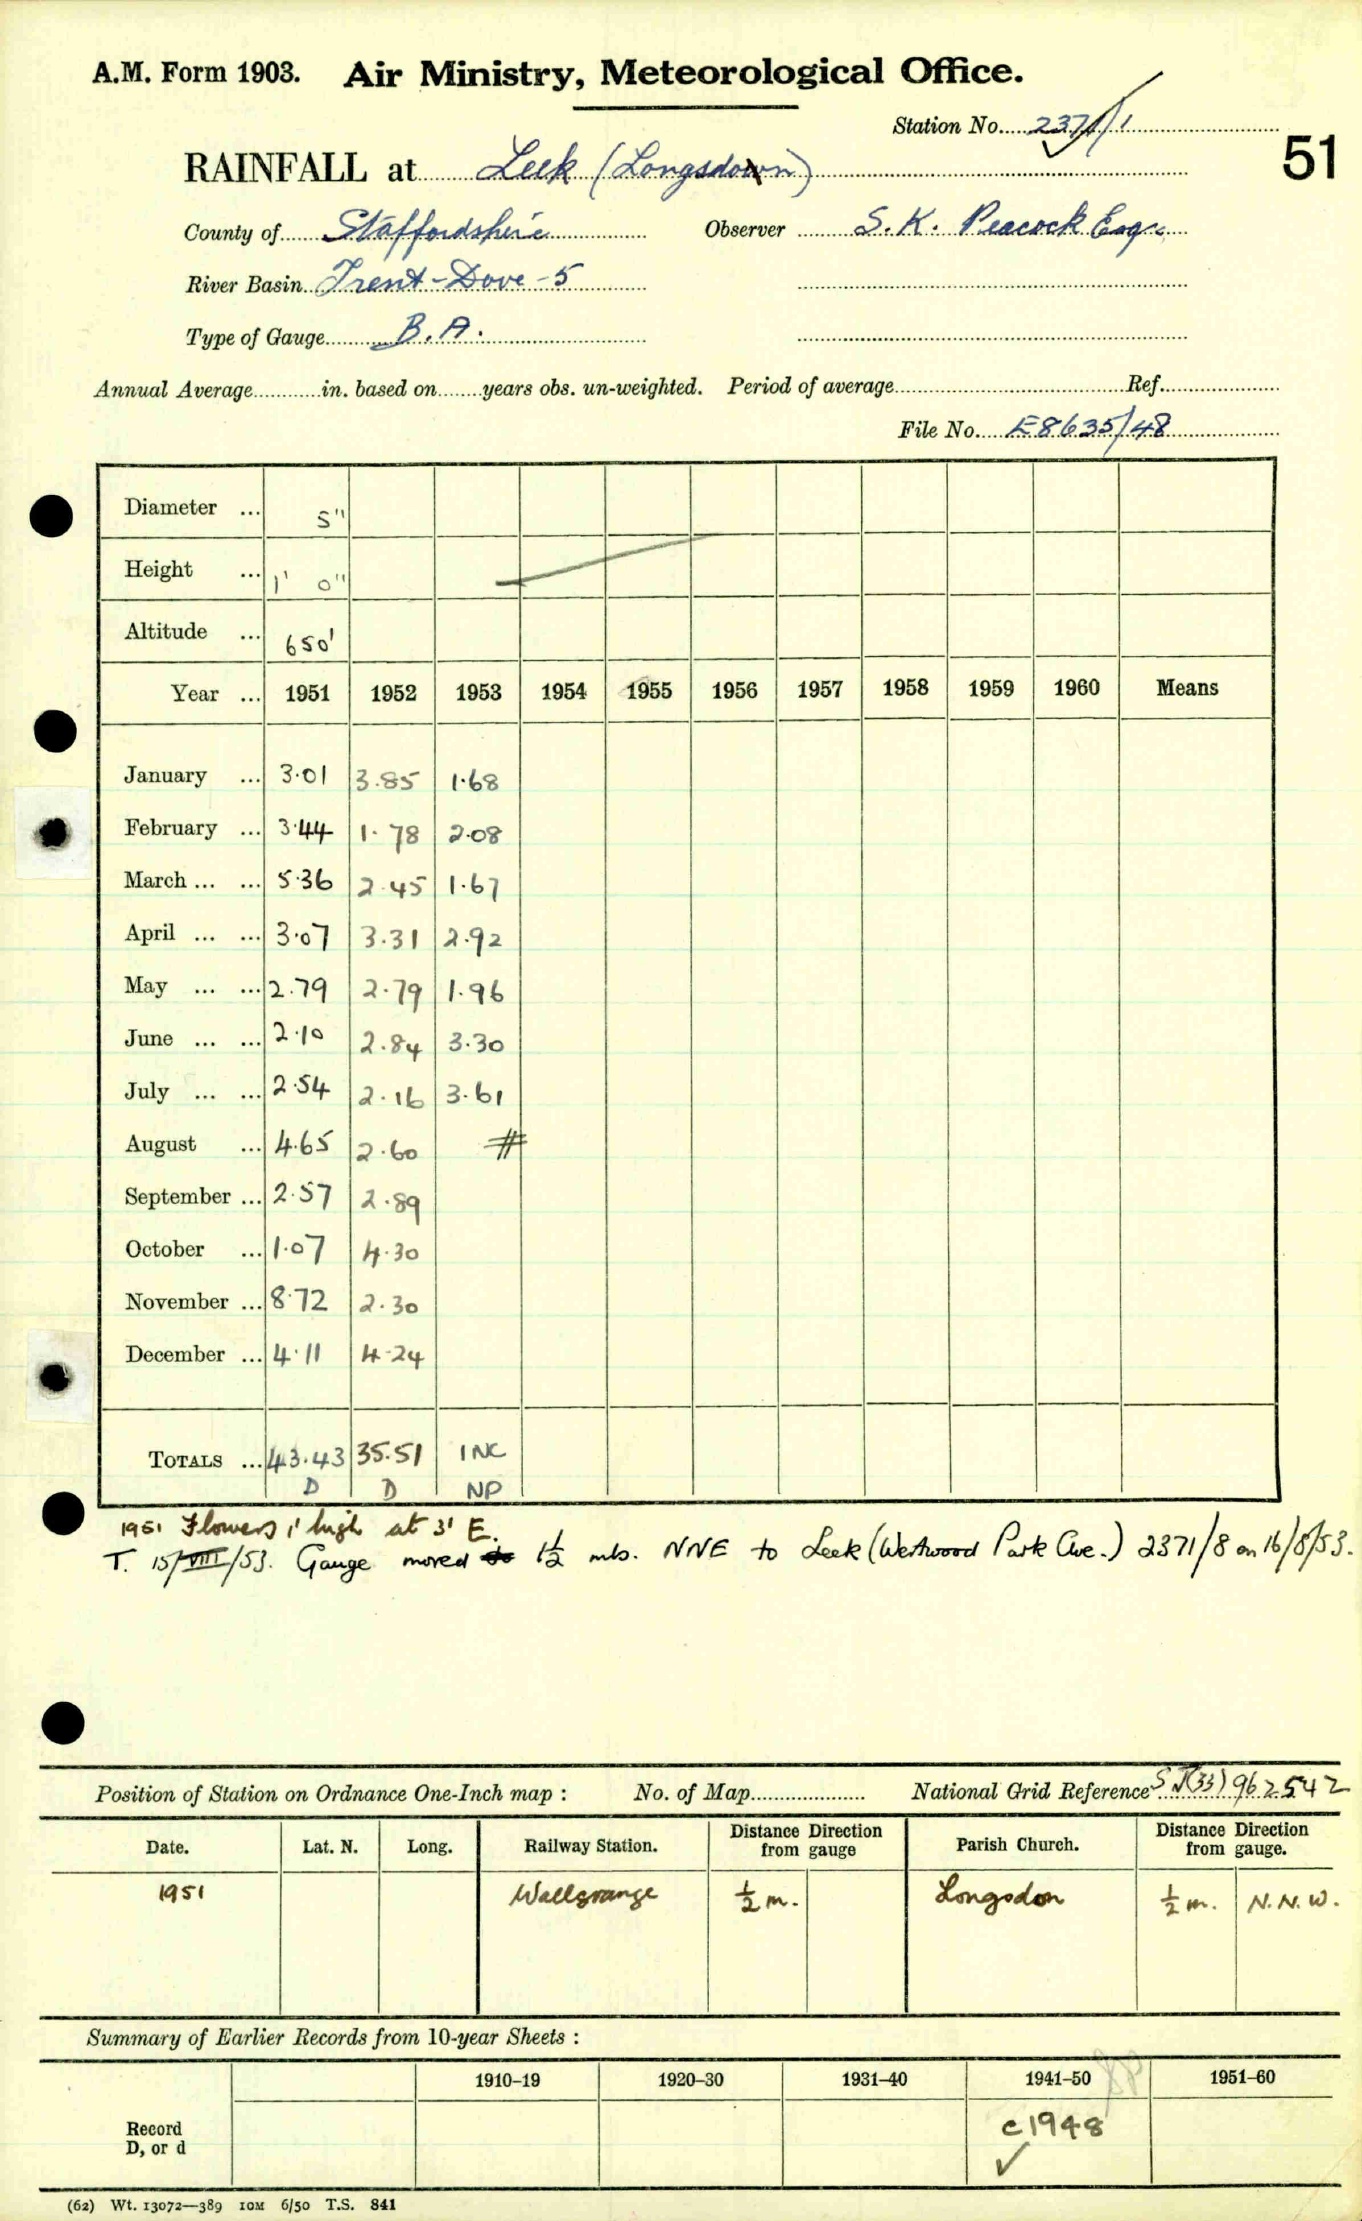 A.M. Form 1903. Air Ministry, Meteorological Office.
Station No. 2371/1
51
RAINFALL at Leek (Longsdon)
County of Staffordshire Observer S. K. Peacock Esq.
River Basin Trent-Dove-5
Type of Gauge B.A.
Annual Average in. based on years obs. un-weighted. Period of average Ref.
File No. E8635/48
Diameter ... 5"
Height ... 1' 0"
Altitude ... 650'
Year ... 1951 1952 1953 1954 1955 1956 1957 1958 1959 1960 Means
January ... 3.01 3.85 1.68
February ... 3.44 1.78 2.08
March ... ... 5.36 2.45 1.67
April ... ... 3.07 3.31 2.92
May ... ... 2.79 2.79 1.96
June ... ... 2.10 2.84 3.30
July ... ... 2.54 2.16 3.61
August ... 4.65 2.60 #
September ... 2.57 2.89
October ... 1.07 4.30
November ... 8.72 2.30
December ... 4.11 4.24
TOTALS ... 43.43 35.51 INC
D D NP
1951 Flowers 1' high at 3' E.
T. 15/VIII/53. Gauge moved 1½ mls. NNE to Leek (Westwood Park Ave.) 2371/8 on 16/8/53.
Position of Station on Ordnance One-Inch map : No. of Map National Grid Reference SJ(33) 962542
Date. Lat. N. Long. Railway Station. Distance Direction from gauge Parish Church. Distance Direction from gauge.
1951 Wallgrange ½ m. Longsdon ½ m. N.N.W.
Summary of Earlier Records from 10-year Sheets :
1910-19 1920-30 1931-40 1941-50 1951-60
Record
D, or d
c1948 ✓
(62) Wt. 13072—389 10M 6/50 T.S. 841